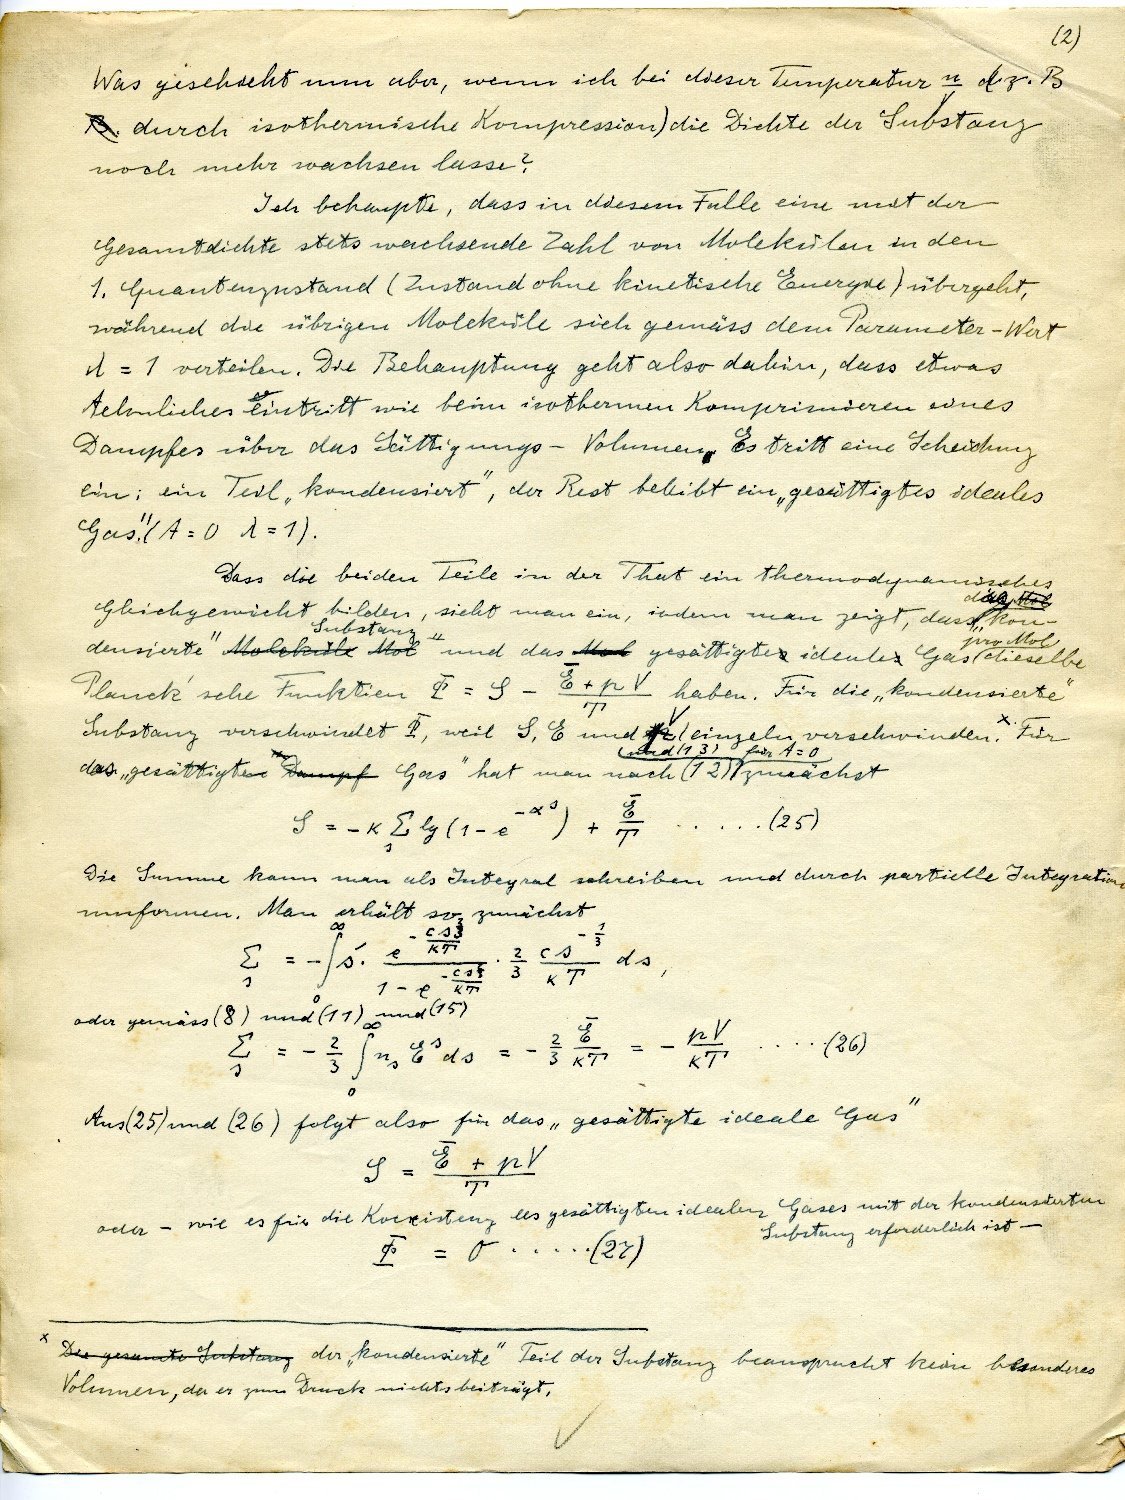 (2)
Was geschieht nun aber, wenn ich bei dieser Temperatur n/V (z. B
B. durch isothermische Kompression) die Dichte der Substanz
noch mehr wachsen lasse?
Ich behaupte, dass in diesem Falle eine mit der
Gesamtdichte stets wachsende Zahl von Molekülen in den
1. Quantenzustand (Zustand ohne kinetische Energie) übergeht,
während die übrigen Moleküle sich gemäss dem Parameter-Wert
λ = 1 verteilen. Die Behauptung geht also dahin, dass etwas
Aehnliches eintritt wie beim isothermen Komprimieren eines
Dampfes über das Sättigungs-Volumen. Es tritt eine Scheidung
ein; ein Teil „kondensiert", der Rest bleibt ein „gesättigtes ideales
Gas". (A = 0 λ = 1).
Dass die beiden Teile in der That ein thermodynamisches
Gleichgewicht bilden, sieht man ein, indem man zeigt, dass die „kon-
densierte" Moleküle Mol Substanz" und das Mol gesättigte ideale Gas pro Mol dieselbe
Planck'sche Funktion Φ = S − (Ē + pV)/T haben. Für die „kondensierte"
Substanz verschwindet Φ, weil S, E und V einzeln verschwinden.ˣ Für
das „gesättigte Dampf Gas" hat man nach (12) und (13) für A=0 zunächst
S = −κ Σₛ lg(1 − e^(−αˢ)) + Ē/T . . . . . (25)
Die Summe kann man als Integral schreiben und durch partielle Integration
umformen. Man erhält so zunächst
Σₛ = −∫₀^∞ s · e^(−cs^⅔/κT) / (1 − e^(−cs^⅔/κT)) · 2/3 cs^(−⅓)/κT ds,
oder gemäss (8) und (11) und (15)
Σₛ = − 2/3 ∫₀^∞ nₛ Eˢ ds = − 2/3 Ē/κT = − pV/κT . . . . . (26)
Aus (25) und (26) folgt also für das „gesättigte ideale Gas"
S = (Ē + pV)/T
oder – wie es für die Koexistenz des gesättigten idealen Gases mit der kondensierten
Substanz erforderlich ist —
Φ = 0 . . . . . (27)
x Die gesamte Substanz der „kondensierte" Teil der Substanz beansprucht kein besonderes
Volumen, da er zum Druck nichts beiträgt.